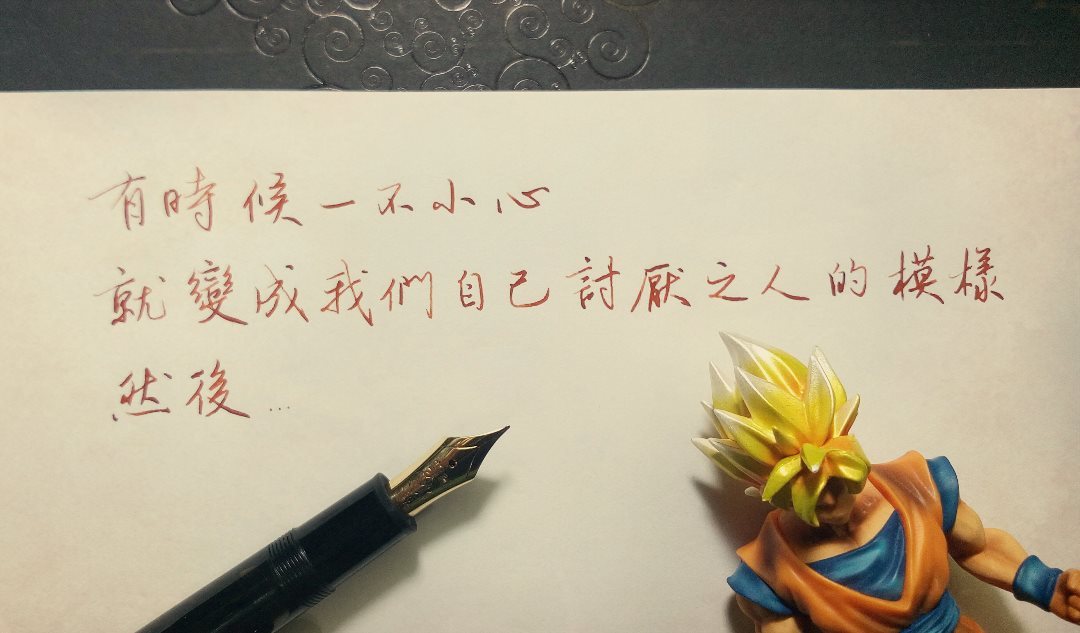 有時候一不小心
就變成我們自己討厭之人的模樣
然後…